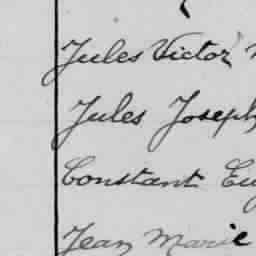 Jules Victor
Jules Joseph
Constant
Jean Marie